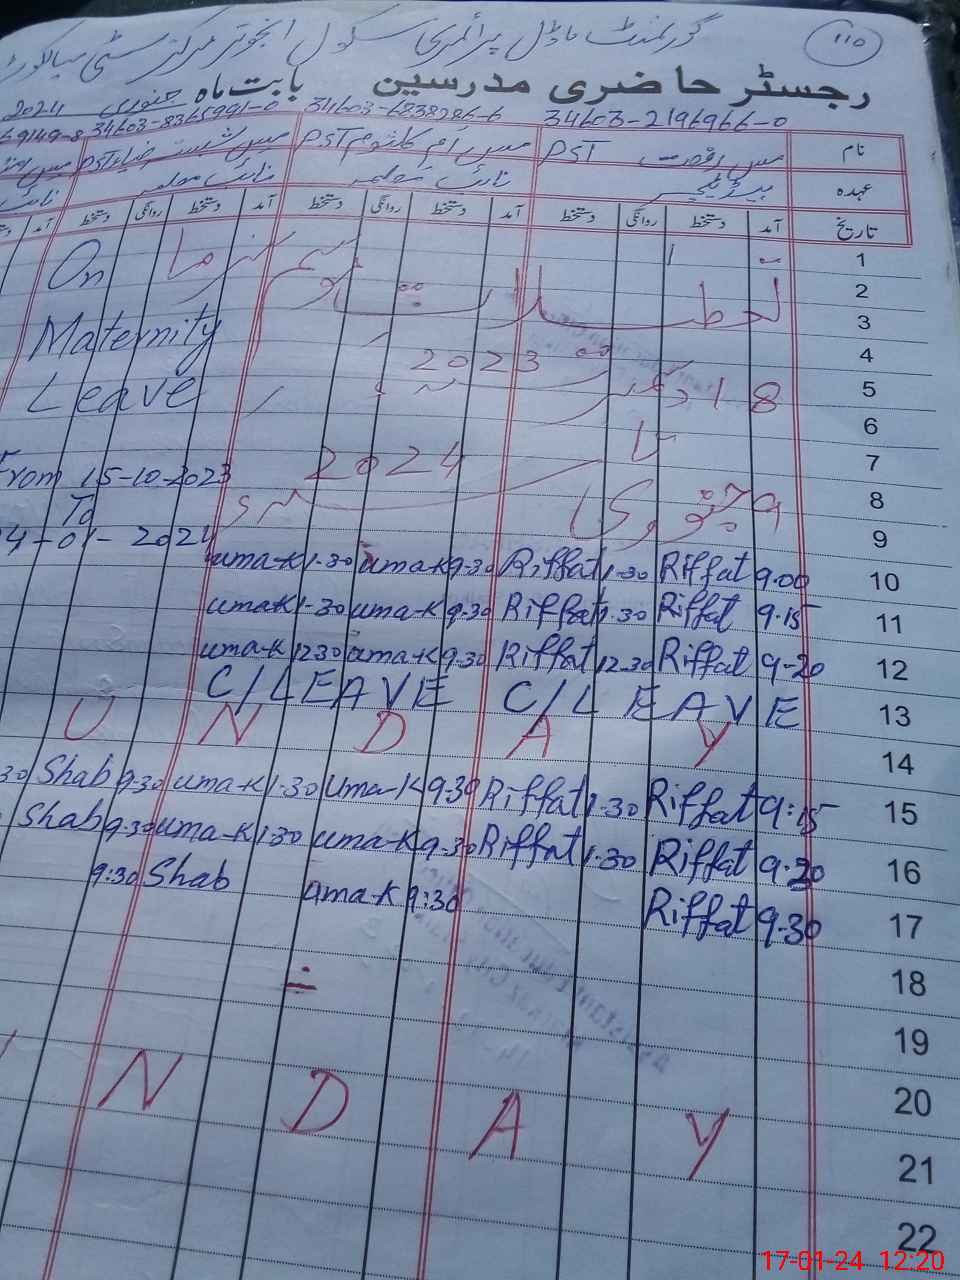 110
گورنمنٹ ماڈل پرائمری سکول مرکز سٹی سیالکوٹ
رجسٹر حاضری مدرسین بابت ماہ جنوری 2024
34603-2196966-0 34603-6838286-6 34603-8365991-0 69149-8
نام مس رفعت PST مس ام کلثوم PST مس PST
عہدہ ہیڈ ٹیچر نائب معلمہ نائب معلمہ
تاریخ آمد دستخط روانگی دستخط آمد دستخط روانگی دستخط آمد دستخط روانگی دستخط آمد
1 تعطیلات موسم سرما On
2
3 Maternity
4 2023
5 18 دسمبر Leave
6 تا
7 2024 From 15-10-2023
8 9 جنوری To
9 4-01-2024
10 9.00 Riffat 1.30 Riffat 9.30 uma-K 1.30 uma-K
11 9.15 Riffat 1.30 Riffat 9.30 uma-K 1-30 umak
12 9-20 Riffat 12.30 Riffat 9.30 uma-K 12.30 uma-K
13 C/LEAVE C/LEAVE
14 U N D A Y
15 9:15 Riffat 1.30 Riffat 9.30 uma-K 1.30 uma-K 9.30 Shab 30
16 9.20 Riffat 1.30 Riffat 9.30 uma-K 1.30 uma-K 9.30 Shab
17 9.30 Riffat 9:30 uma-K Shab 9:30
18
19
20
21 N D A Y
22
17-01-24 12:20